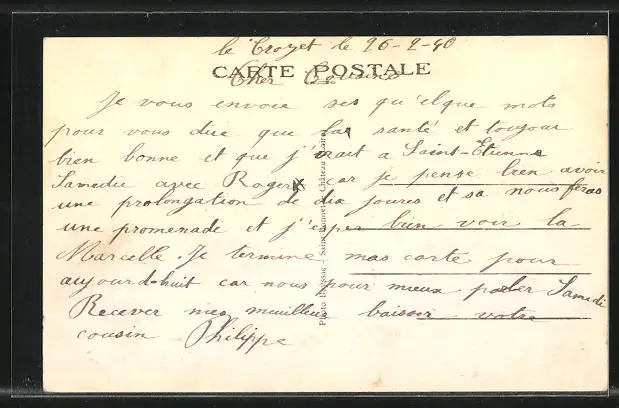 le Crozet le 26-2-40
CARTE POSTALE
Cher Cousine
Je vous envoie ses qu'elque mots
pour vous dire que la santé et toujour
bien bonne et que j'irait a Saint-Etienne
Samedie avec Roger car je pense bien avoir
une prolongation de dix joures et sa nous feras
une promenade et j'esper bien voir la
Marcelle. Je termine mas carte pour
aujourd'huit car nous pour mieux parler Samedi
Recever mes meuilleur baisser votre
cousin Philippe
Photo